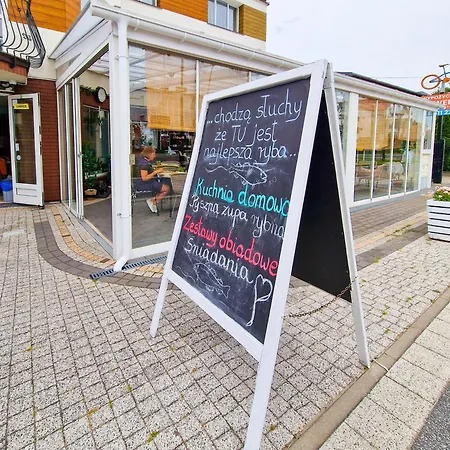 ...chodzą słuchy
że TU jest
najlepsza ryba...
Kuchnia domowa
Pyszna zupa rybna
Zestawy obiadowe
Śniadania